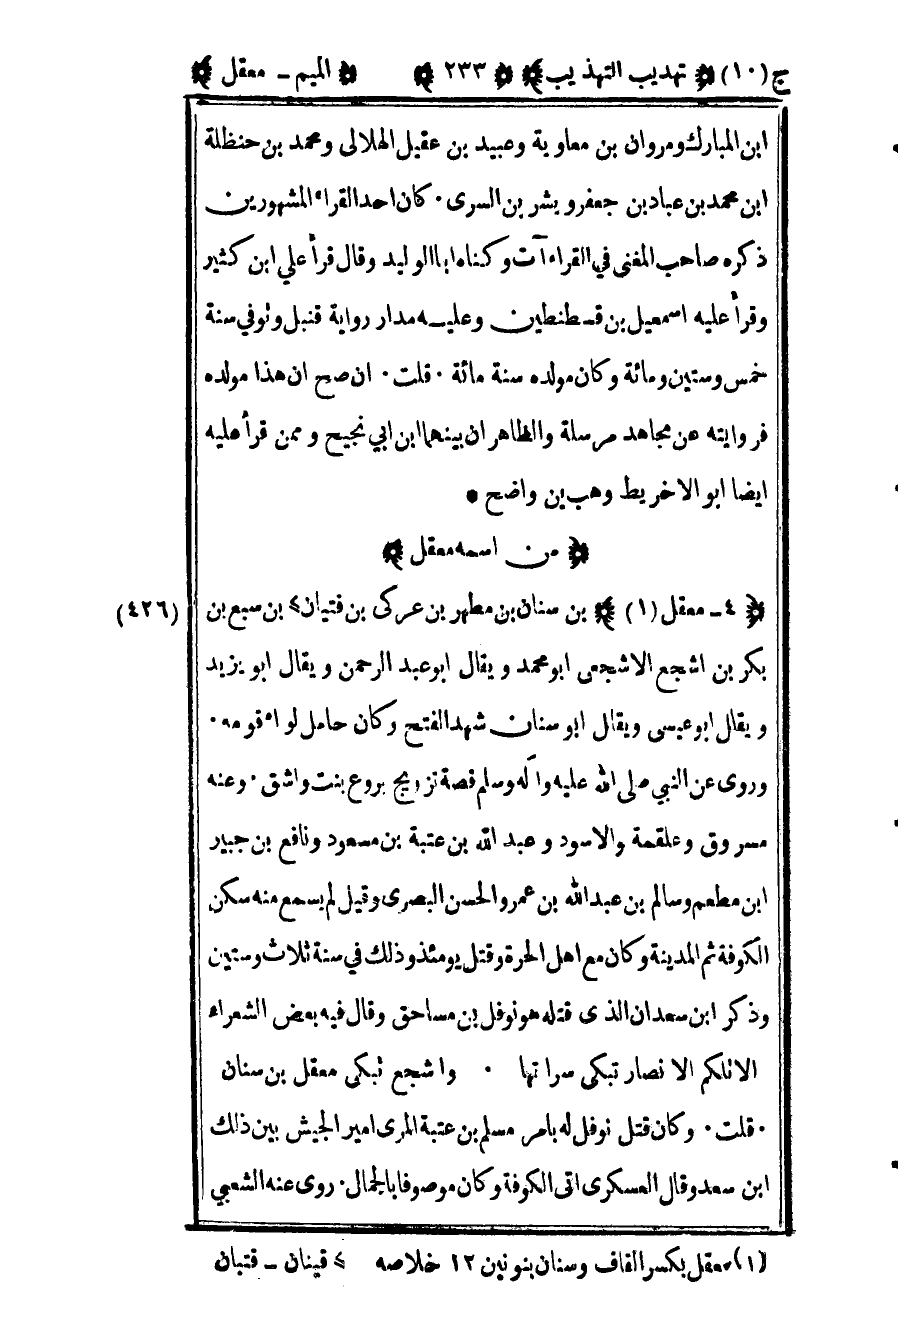 ج (١٠) ﴿ تهذيب التهذيب ﴾ ﴿ ٢٣٣ ﴾ ﴿ الميم ـ معقل ﴾
ابن المبارك ومروان بن معاوية وعبيد بن عقيل الهلالى ومحمد بن حنظلة
ابن محمد بن عباد بن جعفر وبشر بن السرى ٠ كان احد القراء المشهورين
ذكره صاحب المغنى في القراءآت وكناه ابا الوليد وقال قرأ علي ابن كثير
وقرأ عليه اسمعيل بن قسطنطين وعليه مدار رواية قنبل وتوفي سنة
خمس وستين ومائة وكان مولده سنة مائة ٠ قلت ٠ ان صح ان هذا مولده
فروايته عن مجاهد مرسلة والظاهر ان بينهما ابن ابي نجيح وممن قرأ عليه
ايضا ابو الاخريط وهب بن واضح ●
﴿ من اسمه معقل ﴾
﴿ ٤ ـ معقل (١) ﴾ بن سنان بن مطهر بن عركى بن فتيان ⩽ بن سبع بن (٤٢٦)
بكر بن اشجع الاشجعى ابو محمد ويقال ابو عبد الرحمن ويقال ابو يزيد
ويقال ابو عيسى ويقال ابو سنان شهد الفتح وكان حامل لواء قومه ٠
وروى عن النبي صلى الله عليه وآله وسلم قصة تزويج بروع بنت واشق ٠ وعنه
مسروق وعلقمة والاسود وعبد الله بن عتبة بن مسعود ونافع بن جبير
ابن مطعم وسالم بن عبد الله بن عمر والحسن البصرى وقيل لم يسمع منه سكن
الكوفة ثم المدينة وكان مع اهل الحرة وقتل يومئذ وذلك في سنة ثلاث وستين
وذكر ابن سعد ان الذى قتله هو نوفل بن مساحق وقال فيه بعض الشعراء
الا تلكم الانصار تبكى سراتها ٠ واشجع تبكى معقل بن سنان
٠ قلت ٠ وكان قتل نوفل له بامر مسلم بن عتبة المرى امير الجيش بين ذلك
ابن سعد وقال العسكرى اتى الكوفة وكان موصوفا بالجمال ٠ روى عنه الشعبي
(١) معقل بكسر القاف وسنان بنونين ١٢ خلاصه ⩽ قينان ـ قتبان